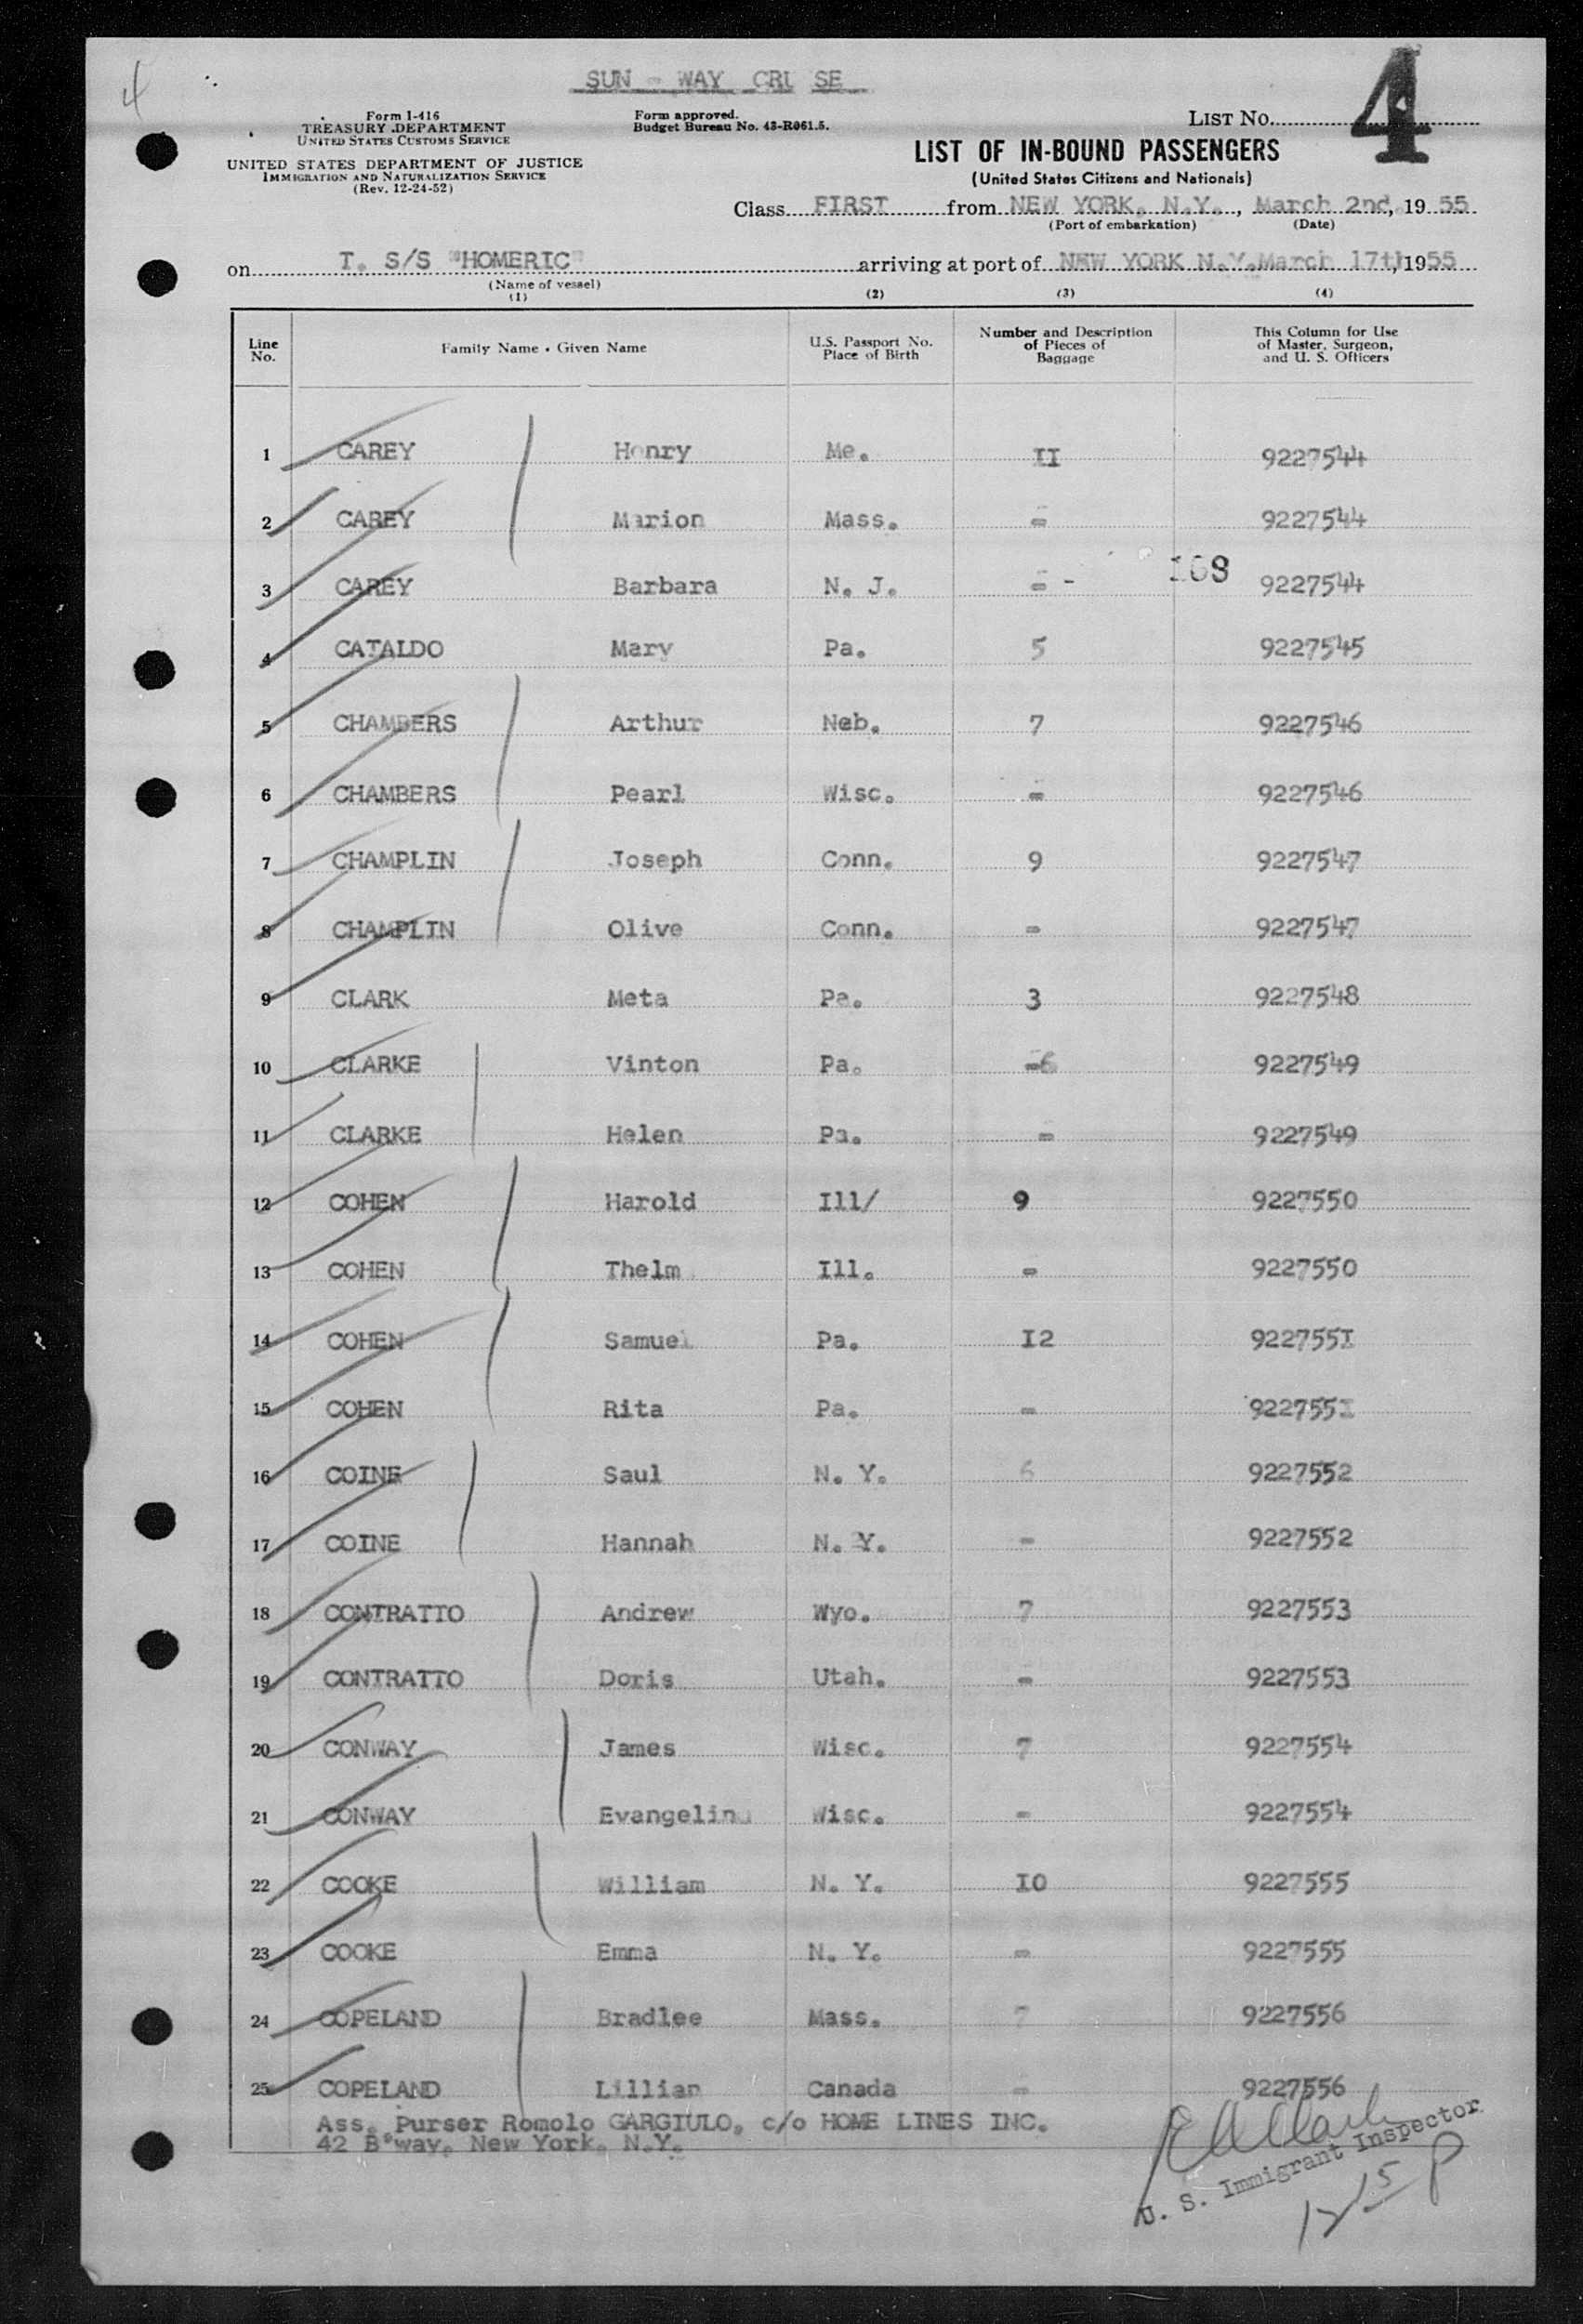 4
SUN - WAY CRU SE
Form I-416
TREASURY DEPARTMENT
UNITED STATES CUSTOMS SERVICE
UNITED STATES DEPARTMENT OF JUSTICE
IMMIGRATION AND NATURALIZATION SERVICE
(Rev. 12-24-52)
Form approved.
Budget Bureau No. 43-R061.5.
LIST No. 4
LIST OF IN-BOUND PASSENGERS
(United States Citizens and Nationals)
Class FIRST from NEW YORK, N.Y., March 2nd, 19 55
(Port of embarkation) (Date)
on T. S/S "HOMERIC" arriving at port of NEW YORK N.Y. March 17th, 1955
(Name of vessel)
(1) (2) (3) (4)
Line No. Family Name • Given Name U.S. Passport No. Place of Birth Number and Description of Pieces of Baggage This Column for Use of Master, Surgeon, and U. S. Officers
1 CAREY Henry Me. II 9227544
2 CAREY Marion Mass. - 9227544
3 CAREY Barbara N. J. - - 168 9227544
4 CATALDO Mary Pa. 5 9227545
5 CHAMBERS Arthur Neb. 7 9227546
6 CHAMBERS Pearl Wisc. - 9227546
7 CHAMPLIN Joseph Conn. 9 9227547
8 CHAMPLIN Olive Conn. - 9227547
9 CLARK Meta Pa. 3 9227548
10 CLARKE Vinton Pa. -6 9227549
11 CLARKE Helen Pa. - 9227549
12 COHEN Harold Ill/ 9 9227550
13 COHEN Thelm Ill. - 9227550
14 COHEN Samuel Pa. I2 922755I
15 COHEN Rita Pa. - 922755I
16 COINE Saul N. Y. 6 9227552
17 COINE Hannah N. Y. - 9227552
18 CONTRATTO Andrew Wyo. 7 9227553
19 CONTRATTO Doris Utah. - 9227553
20 CONWAY James Wisc. 7 9227554
21 CONWAY Evangelina Wisc. - 9227554
22 COOKE William N. Y. I0 9227555
23 COOKE Emma N. Y. - 9227555
24 COPELAND Bradlee Mass. 7 9227556
25 COPELAND Lillian Canada - 9227556
Ass. Purser Romolo GARGIULO, c/o HOME LINES INC.
42 B'way, New York, N.Y.
U. S. Immigrant Inspector
12 15 P